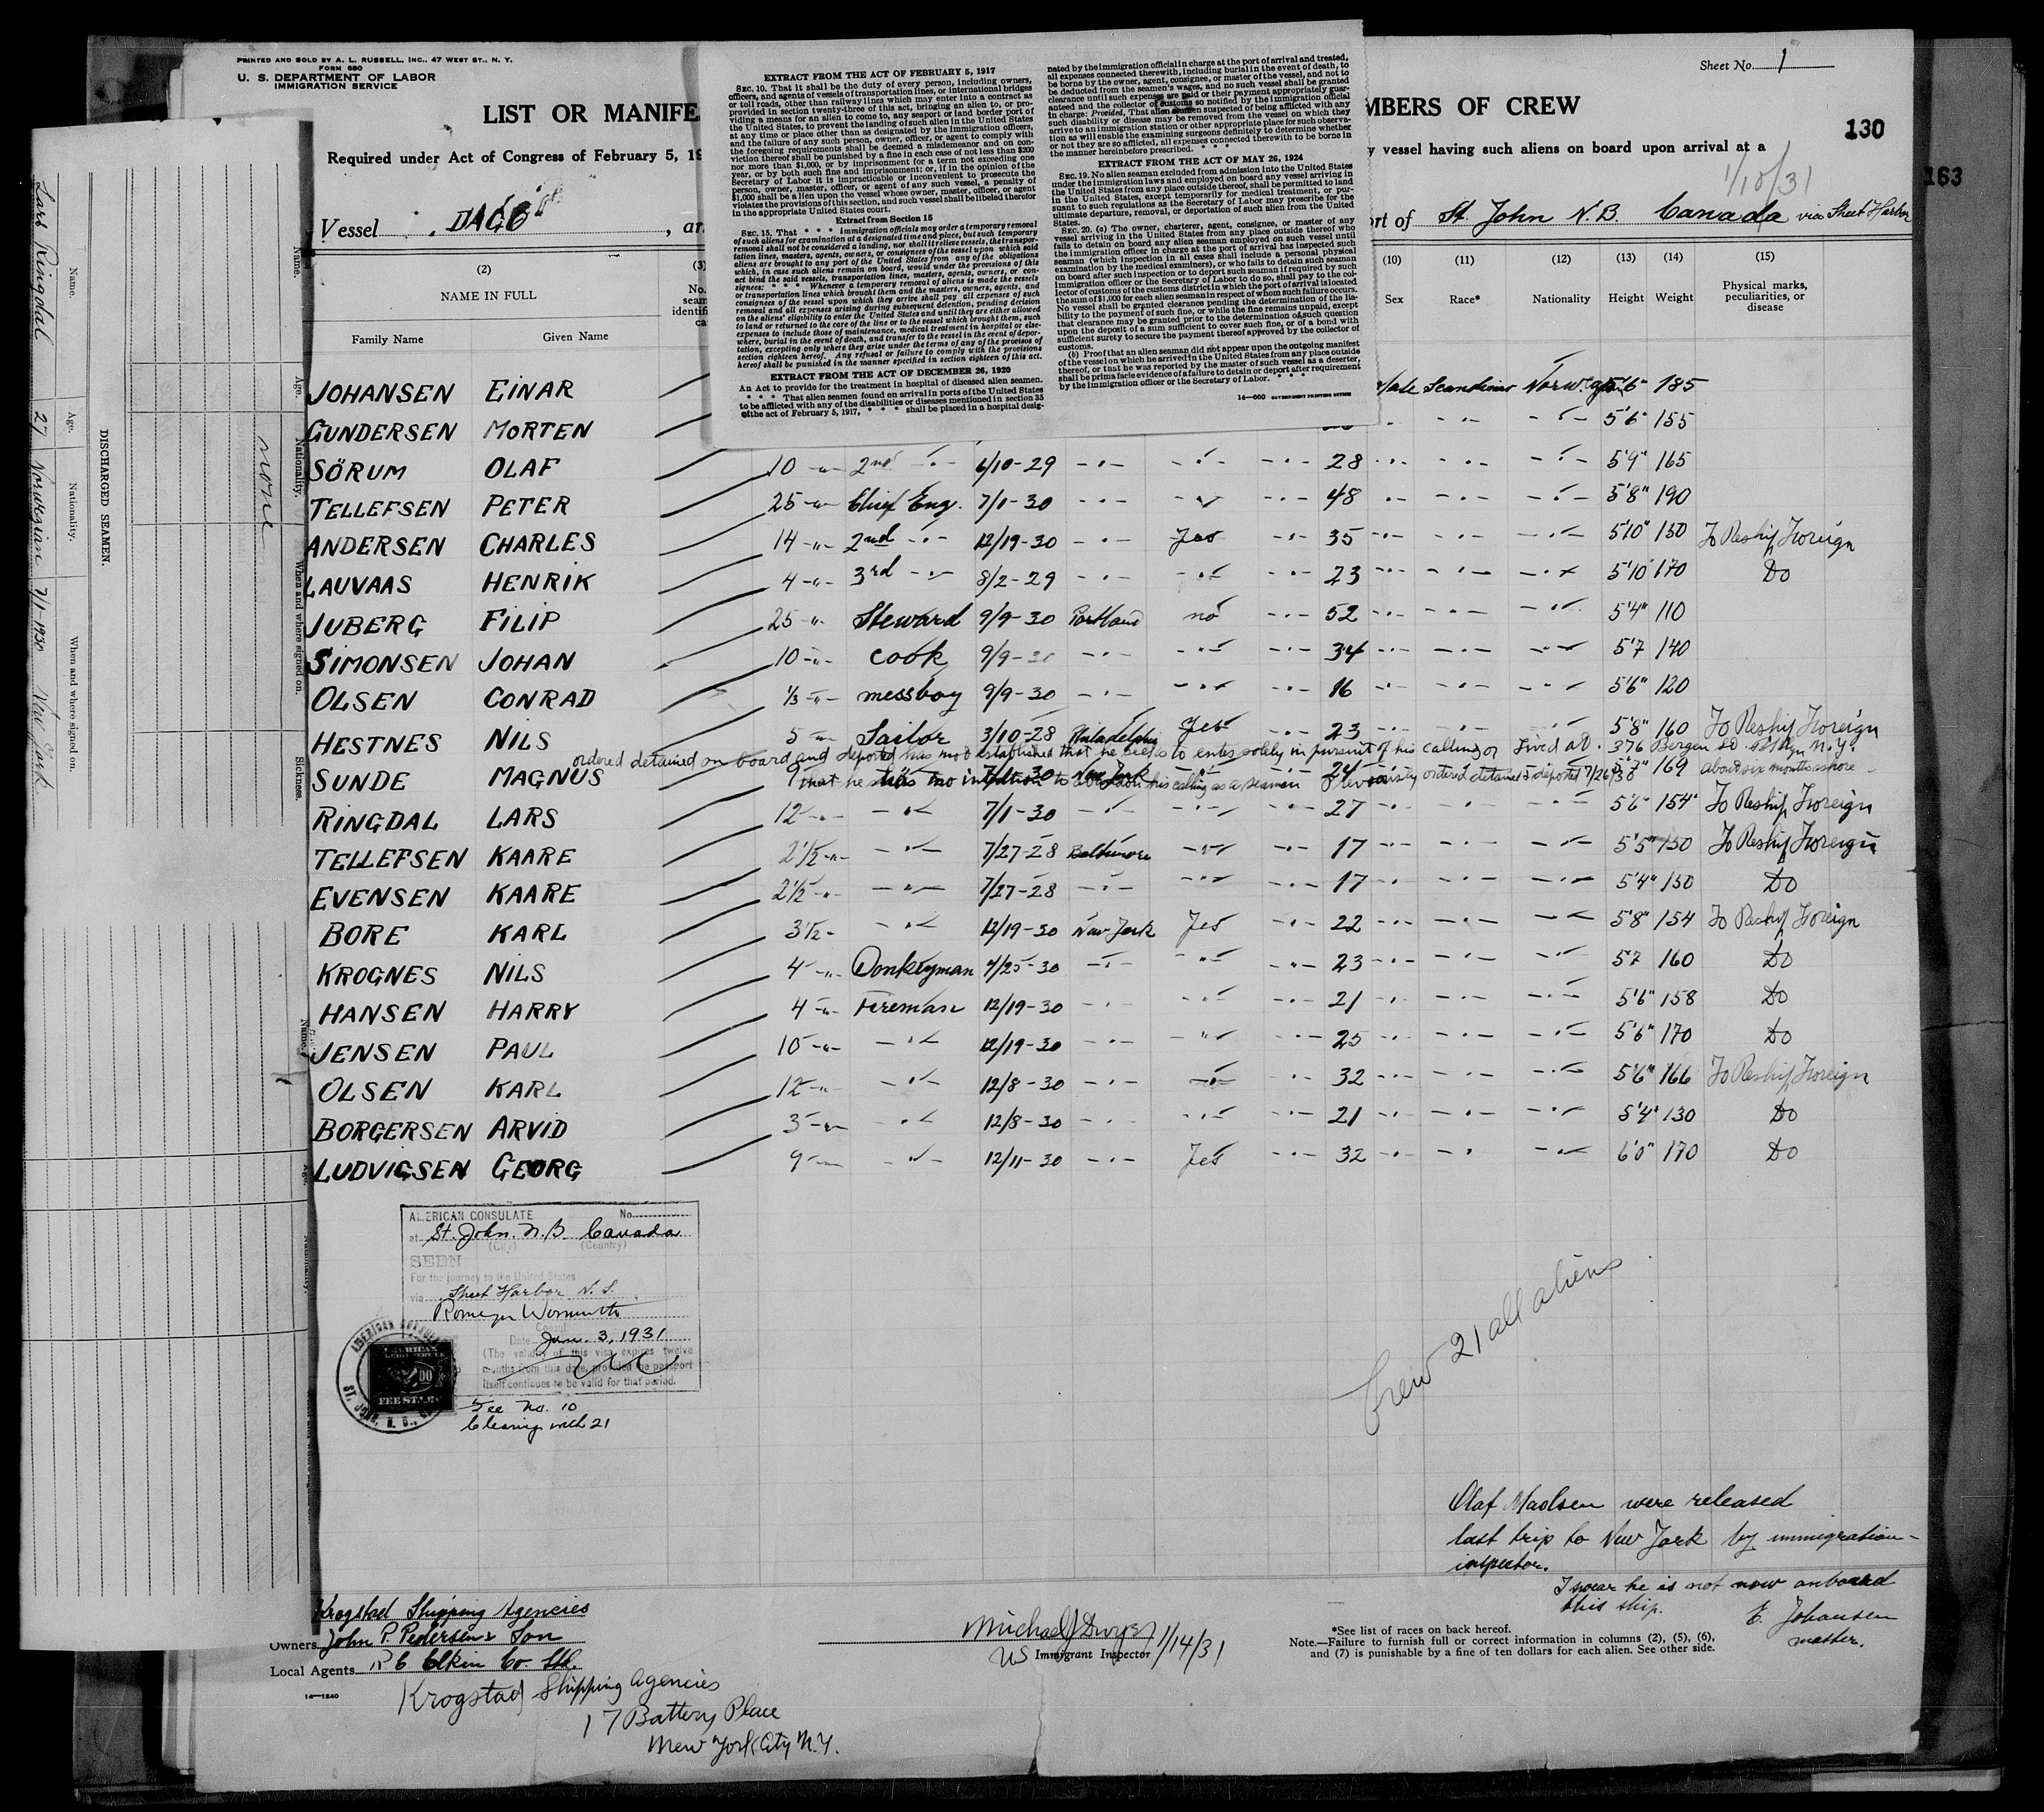 PRINTED AND SOLD BY A. L. RUSSELL, INC., 47 WEST ST., N. Y.
FORM 680
U. S. DEPARTMENT OF LABOR
IMMIGRATION SERVICE
Sheet No. 1
LIST OR MANIFE
MBERS OF CREW
130
Required under Act of Congress of February 5, 19
y vessel having such aliens on board upon arrival at a
1/10/31
163
Vessel DAGO, ar
rt of St. John N.B. Canada via Sheet Harbor
EXTRACT FROM THE ACT OF FEBRUARY 5, 1917
SEC. 10. That it shall be the duty of every person, including owners,
officers, and agents of vessels of transportation lines, or international bridges
or toll roads, other than railway lines which may enter into a contract as
provided in section twenty-three of this act, bringing an alien to, or pro-
viding a means for an alien to come to, any seaport or land border port of
the United States, to prevent the landing of such alien in the United States
at any time or place other than as designated by the immigration officers,
and the failure of any such person, owner, officer, or agent to comply with
the foregoing requirements shall be deemed a misdemeanor and on con-
viction thereof shall be punished by a fine in each case of not less than $200
nor more than $1,000, or by imprisonment for a term not exceeding one
year, or by both such fine and imprisonment; or, if in the opinion of the
Secretary of Labor it is impracticable or inconvenient to prosecute the
person, owner, master, officer, or agent of any such vessel, a penalty of
$1,000 shall be a lien upon the vessel whose owner, master, officer, or agent
violates the provisions of this section, and such vessel shall be libeled therefor
in the appropriate United States court.
Extract from Section 15
SEC. 15. That * * * Immigration officials may order a temporary removal
of such aliens for examination at a designated time and place, but such temporary
removal shall not be considered a landing, nor shall it relieve vessels, the transpor-
tation lines, masters, agents, owners, or consignees of the vessel upon which said
aliens are brought to any port of the United States from any of the obligations
which, in case such aliens remain on board, would under the provisions of this
act bind the said vessels, transportation lines, masters, agents, owners, or con-
signees: * * * Whenever a temporary removal of aliens is made the vessels
or transportation lines which brought them and the masters, owners, agents, and
consignees of the vessel upon which they arrive shall pay all expenses of such
removal and all expenses arising during subsequent detention, pending decision
on the aliens' eligibility to enter the United States and until they are either allowed
to land or returned to the care of the line or to the vessel which brought them, such
expenses to include those of maintenance, medical treatment in hospital or else-
where, burial in the event of death, and transfer to the vessel in the event of depor-
tation, excepting only where they arise under the terms of any of the provisos of
section eighteen hereof. Any refusal or failure to comply with the provisions
hereof shall be punished in the manner specified in section eighteen of this act.
EXTRACT FROM THE ACT OF DECEMBER 26, 1920
An Act to provide for the treatment in hospital of diseased alien seamen.
* * * That alien seamen found on arrival in ports of the United States
to be afflicted with any of the disabilities or diseases mentioned in section 35
of the act of February 5, 1917, * * * shall be placed in a hospital desig-
nated by the immigration official in charge at the port of arrival and treated,
all expenses connected therewith, including burial in the event of death, to
be borne by the owner, agent, consignee, or master of the vessel, and not to
be deducted from the seamen's wages, and no such vessel shall be granted
clearance until such expenses are paid or their payment appropriately guar-
anteed and the collector of customs so notified by the immigration official
in charge: Provided, That alien seamen suspected of being afflicted with any
such disability or disease may be removed from the vessel on which they
arrive to an immigration station or other appropriate place for such observa-
tion as will enable the examining surgeons definitely to determine whether
or not they are so afflicted, all expenses connected therewith to be borne in
the manner hereinbefore prescribed. * * *
EXTRACT FROM THE ACT OF MAY 26, 1924
SEC. 19. No alien seaman excluded from admission into the United States
under the immigration laws and employed on board any vessel arriving in
the United States from any place outside thereof, shall be permitted to land
in the United States, except temporarily for medical treatment, or pur-
suant to such regulations as the Secretary of Labor may prescribe for the
ultimate departure, removal, or deportation of such alien from the United
States.
SEC. 20. (a) The owner, charterer, agent, consignee, or master of any
vessel arriving in the United States from any place outside thereof who
fails to detain on board any alien seaman employed on such vessel until
the immigration officer in charge at the port of arrival has inspected such
seaman (which inspection in all cases shall include a personal physical
examination by the medical examiners), or who fails to detain such seaman
on board after such inspection or to deport such seaman if required by such
immigration officer or the Secretary of Labor to do so, shall pay to the col-
lector of customs of the customs district in which the port of arrival is located
the sum of $1,000 for each alien seaman in respect of whom such failure occurs.
No vessel shall be granted clearance pending the determination of the lia-
bility to the payment of such fine, or while the fine remains unpaid, except
that clearance may be granted prior to the determination of such question
upon the deposit of a sum sufficient to cover such fine, or of a bond with
sufficient surety to secure the payment thereof approved by the collector of
customs.
(b) Proof that an alien seaman did not appear upon the outgoing manifest
of the vessel on which he arrived in the United States from any place outside
thereof, or that he was reported by the master of such vessel as a deserter,
shall be prima facie evidence of a failure to detain or deport after requirement
by the immigration officer or the Secretary of Labor. * * *
14—660 GOVERNMENT PRINTING OFFICE
(2) (3) (10) (11) (12) (13) (14) (15)
NAME IN FULL No. seam identifi ca Sex Race* Nationality Height Weight Physical marks, peculiarities, or disease
Family Name Given Name
JOHANSEN EINAR Male Scandinav Norweg 5'6" 185
GUNDERSEN MORTEN 5'6" 155
SÖRUM OLAF 10 2nd 6/10-29 28 5'9" 165
TELLEFSEN PETER 25 Chief Eng. 7/1-30 48 5'8" 190
ANDERSEN CHARLES 14 2nd 12/19-30 Yes 35 5'10" 150 To Reship Foreign
LAUVAAS HENRIK 4 3rd 8/2-29 23 5'10" 170 Do
JUBERG FILIP 25 Steward 9/9-30 Portland no 52 5'4" 110
SIMONSEN JOHAN 10 cook 9/9-30 34 5'7 140
OLSEN CONRAD 1/3 messboy 9/9-30 16 5'6" 120
HESTNES NILS 5 Sailor 3/10-28 Philadelphia Yes 23 5'8" 160 To Reship Foreign
ordered detained on board and deported has not established that he seeks to enter solely in pursuit of his calling or Lived at 376 Bergen St. Bklyn N.Y.
SUNDE MAGNUS 9 7/1-30 New York 24 5'7" 169 about six months ashore
that he has no intention to abandon his calling as a seaman Previously ordered detained & deported 7/26/30
RINGDAL LARS 12 7/1-30 27 5'6" 154 To Reship Foreign
TELLEFSEN KAARE 2 1/2 7/27-28 Baltimore 17 5'5" 150 To Reship Foreign
EVENSEN KAARE 2 1/2 7/27-28 17 5'4" 150 Do
BORE KARL 3 1/2 12/19-30 New York Yes 22 5'8" 154 To Reship Foreign
KROGNES NILS 4 Donkeyman 4/25-30 23 5'7 160 Do
HANSEN HARRY 4 Fireman 12/19-30 21 5'6" 158 Do
JENSEN PAUL 10 12/19-30 25 5'6" 170 Do
OLSEN KARL 12 12/8-30 32 5'6" 166 To Reship Foreign
BORGERSEN ARVID 3 12/8-30 21 5'4" 130 Do
LUDVIGSEN GEORG 9 12/11-30 Yes 32 6'0" 170 Do
AMERICAN CONSULATE No.
at St. John. N.B. Canada
(City) (Country)
SEEN
For the journey to the United States
via Sheet Harbor N.S.
Romeyn Wormuth
Consul
Date Jan. 3, 1931
(The validity of this visa expires twelve
months from this date, provided the passport
itself continues to be valid for that period.
AMERICAN
FEE STAMP
Fee No. 10
Clearing with 21
Crew 21 all aliens
Olaf Madsen were released
last trip to New York by immigration-
inspector.
I swear he is not now onboard
this ship.
E. Johansen
master.
Krogstad Shipping Agencies
Owners John P. Pedersen & Son
Local Agents R C Elkin Co Ltd.
14—1240
Krogstad Shipping Agencies
17 Battery Place
New York City N.Y.
Michael J Dwyer 1/14/31
US Immigrant Inspector
*See list of races on back hereof.
Note.—Failure to furnish full or correct information in columns (2), (5), (6),
and (7) is punishable by a fine of ten dollars for each alien. See other side.
DISCHARGED SEAMEN.
Name. Age. Nationality. When and where signed on.
Lars Ringdal 27 Norwegian 7/1-1930 New York
Name. Age. Nationality. When and where signed on. Sickness.
none